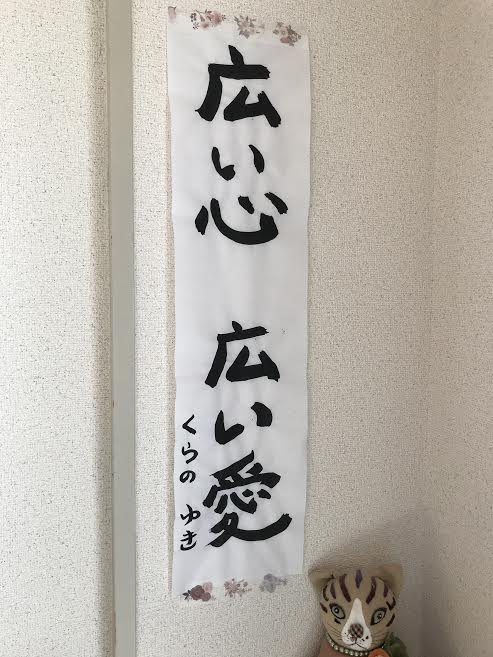 広い心 広い愛
くらの ゆき